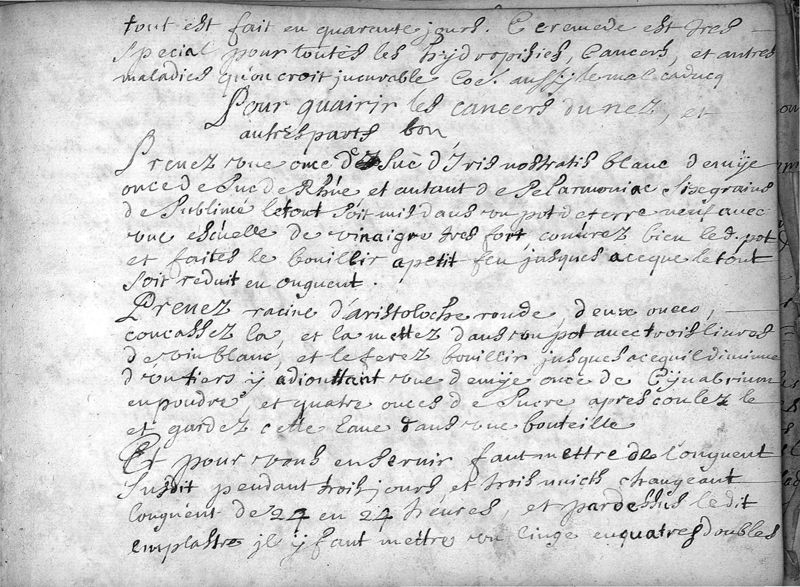 tout est fait en quarante jours. Ce remede est tres
special pour toutes les hydropisies, Cancers, et autres
maladies qu'on croit jncurable Coe aussy le mal caducq
Pour quairir les cancers du nez, et
autres parts bon
Prenez vne once de Suc d'Iris nostratis blanc demije
once de Suc de Rhüe et autant de Sel armoniac Six grains
de Sublimé le tout soit mis dans vn pot de terre neuf avec
vne escüelle de vinaigre tres fort couurez bien led. pot
et faites le bouillir a petit feu jusques a ce que le tout
soit reduit en onguent.
Prenez racine d'aristoloche ronde, deux onces,
concassez la, et la mettez dans vn pot avec trois liures
de vin blanc, et le ferez bouillir jusques a ce quil diminue
d'vn tiers ÿ adiouttant vne demije once de Cijnabrium
en poudre, et quatre onces de Sucre apres coulez le
et gardez cette Eaue dans vne bouteille
Et pour vous en seruir faut mettre de l'onguent
Susdit pendant trois jours, et trois nuicts changeant
l'onguent de 24 en 24 heures, et par dessus ledit
emplastre jl ÿ faut mettre vn linge en quatres doubles